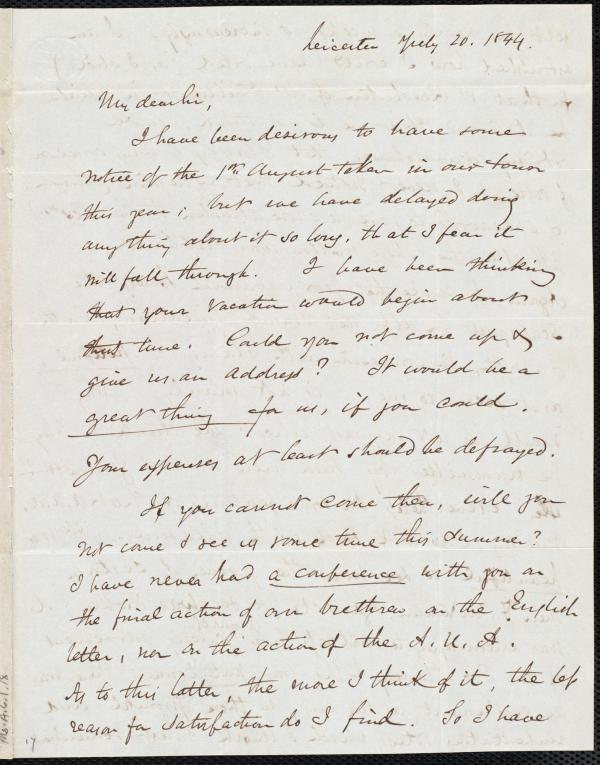 Leicester July 20. 1844.
My dear Sir,
I have been desirous to have some
notice of the 1st August taken in our town
this year; but we have delayed doing
anything about it so long, that I fear it
will fall through. I have been thinking
that your vacation would begin about
that time. Could you not come up &
give us an address? It would be a
great thing for us, if you could.
Your expenses at least should be defrayed.
If you cannot come then, will you
not come & see us some time this summer?
I have never had a conference with you on
the final action of our brethren on the English
letter, nor on the action of the A. U. A.
As to this latter, the more I think of it, the less
reason for satisfaction do I find. So I have
Ms.A.6.1.18
17